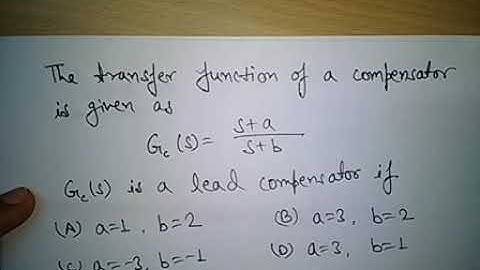 The transfer function of a compensator
is given as
Gc(s) = s+a / s+b
Gc(s) is a lead compensator if
(A) a=1, b=2 (B) a=3, b=2
(C) a=-3, b=-1 (D) a=3, b=1